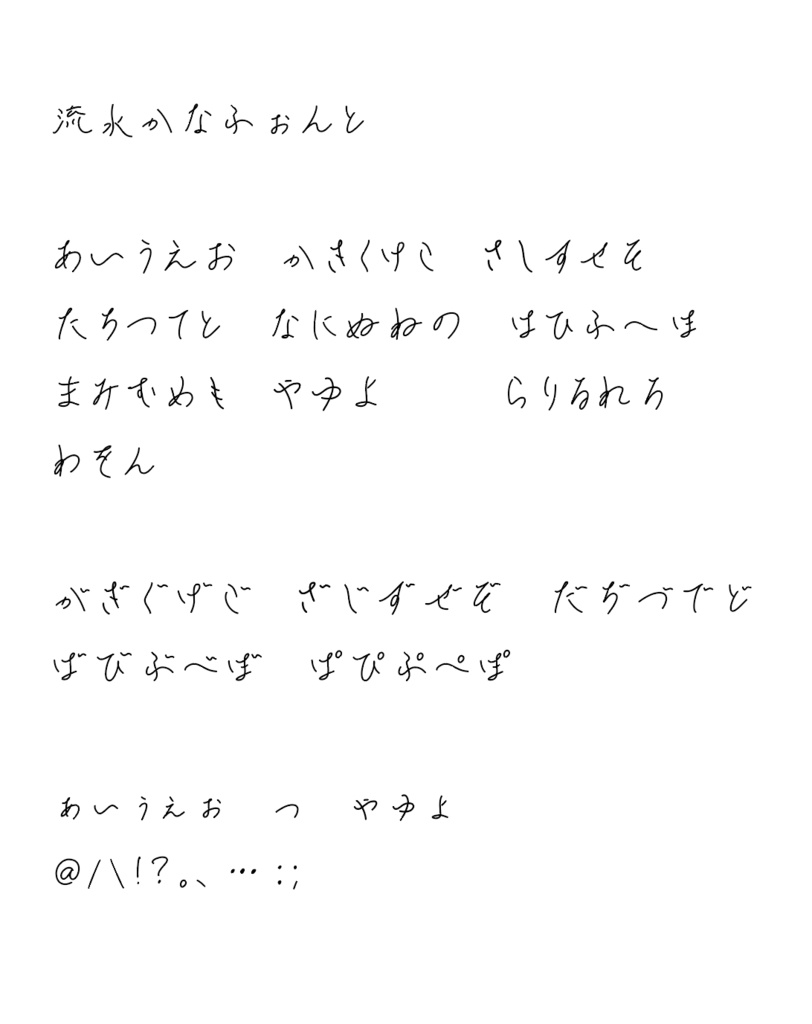 流水かなふぉんと
あいうえお　かきくけこ　さしすせそ
たちつてと　なにぬねの　はひふへほ
まみむめも　やゆよ　　　らりるれろ
わをん
がぎぐげご　ざじずぜぞ　だぢづでど
ばびぶべぼ　ぱぴぷぺぽ
ぁぃぅぇぉ　っ　ゃゅょ
@/\!?。、…:;